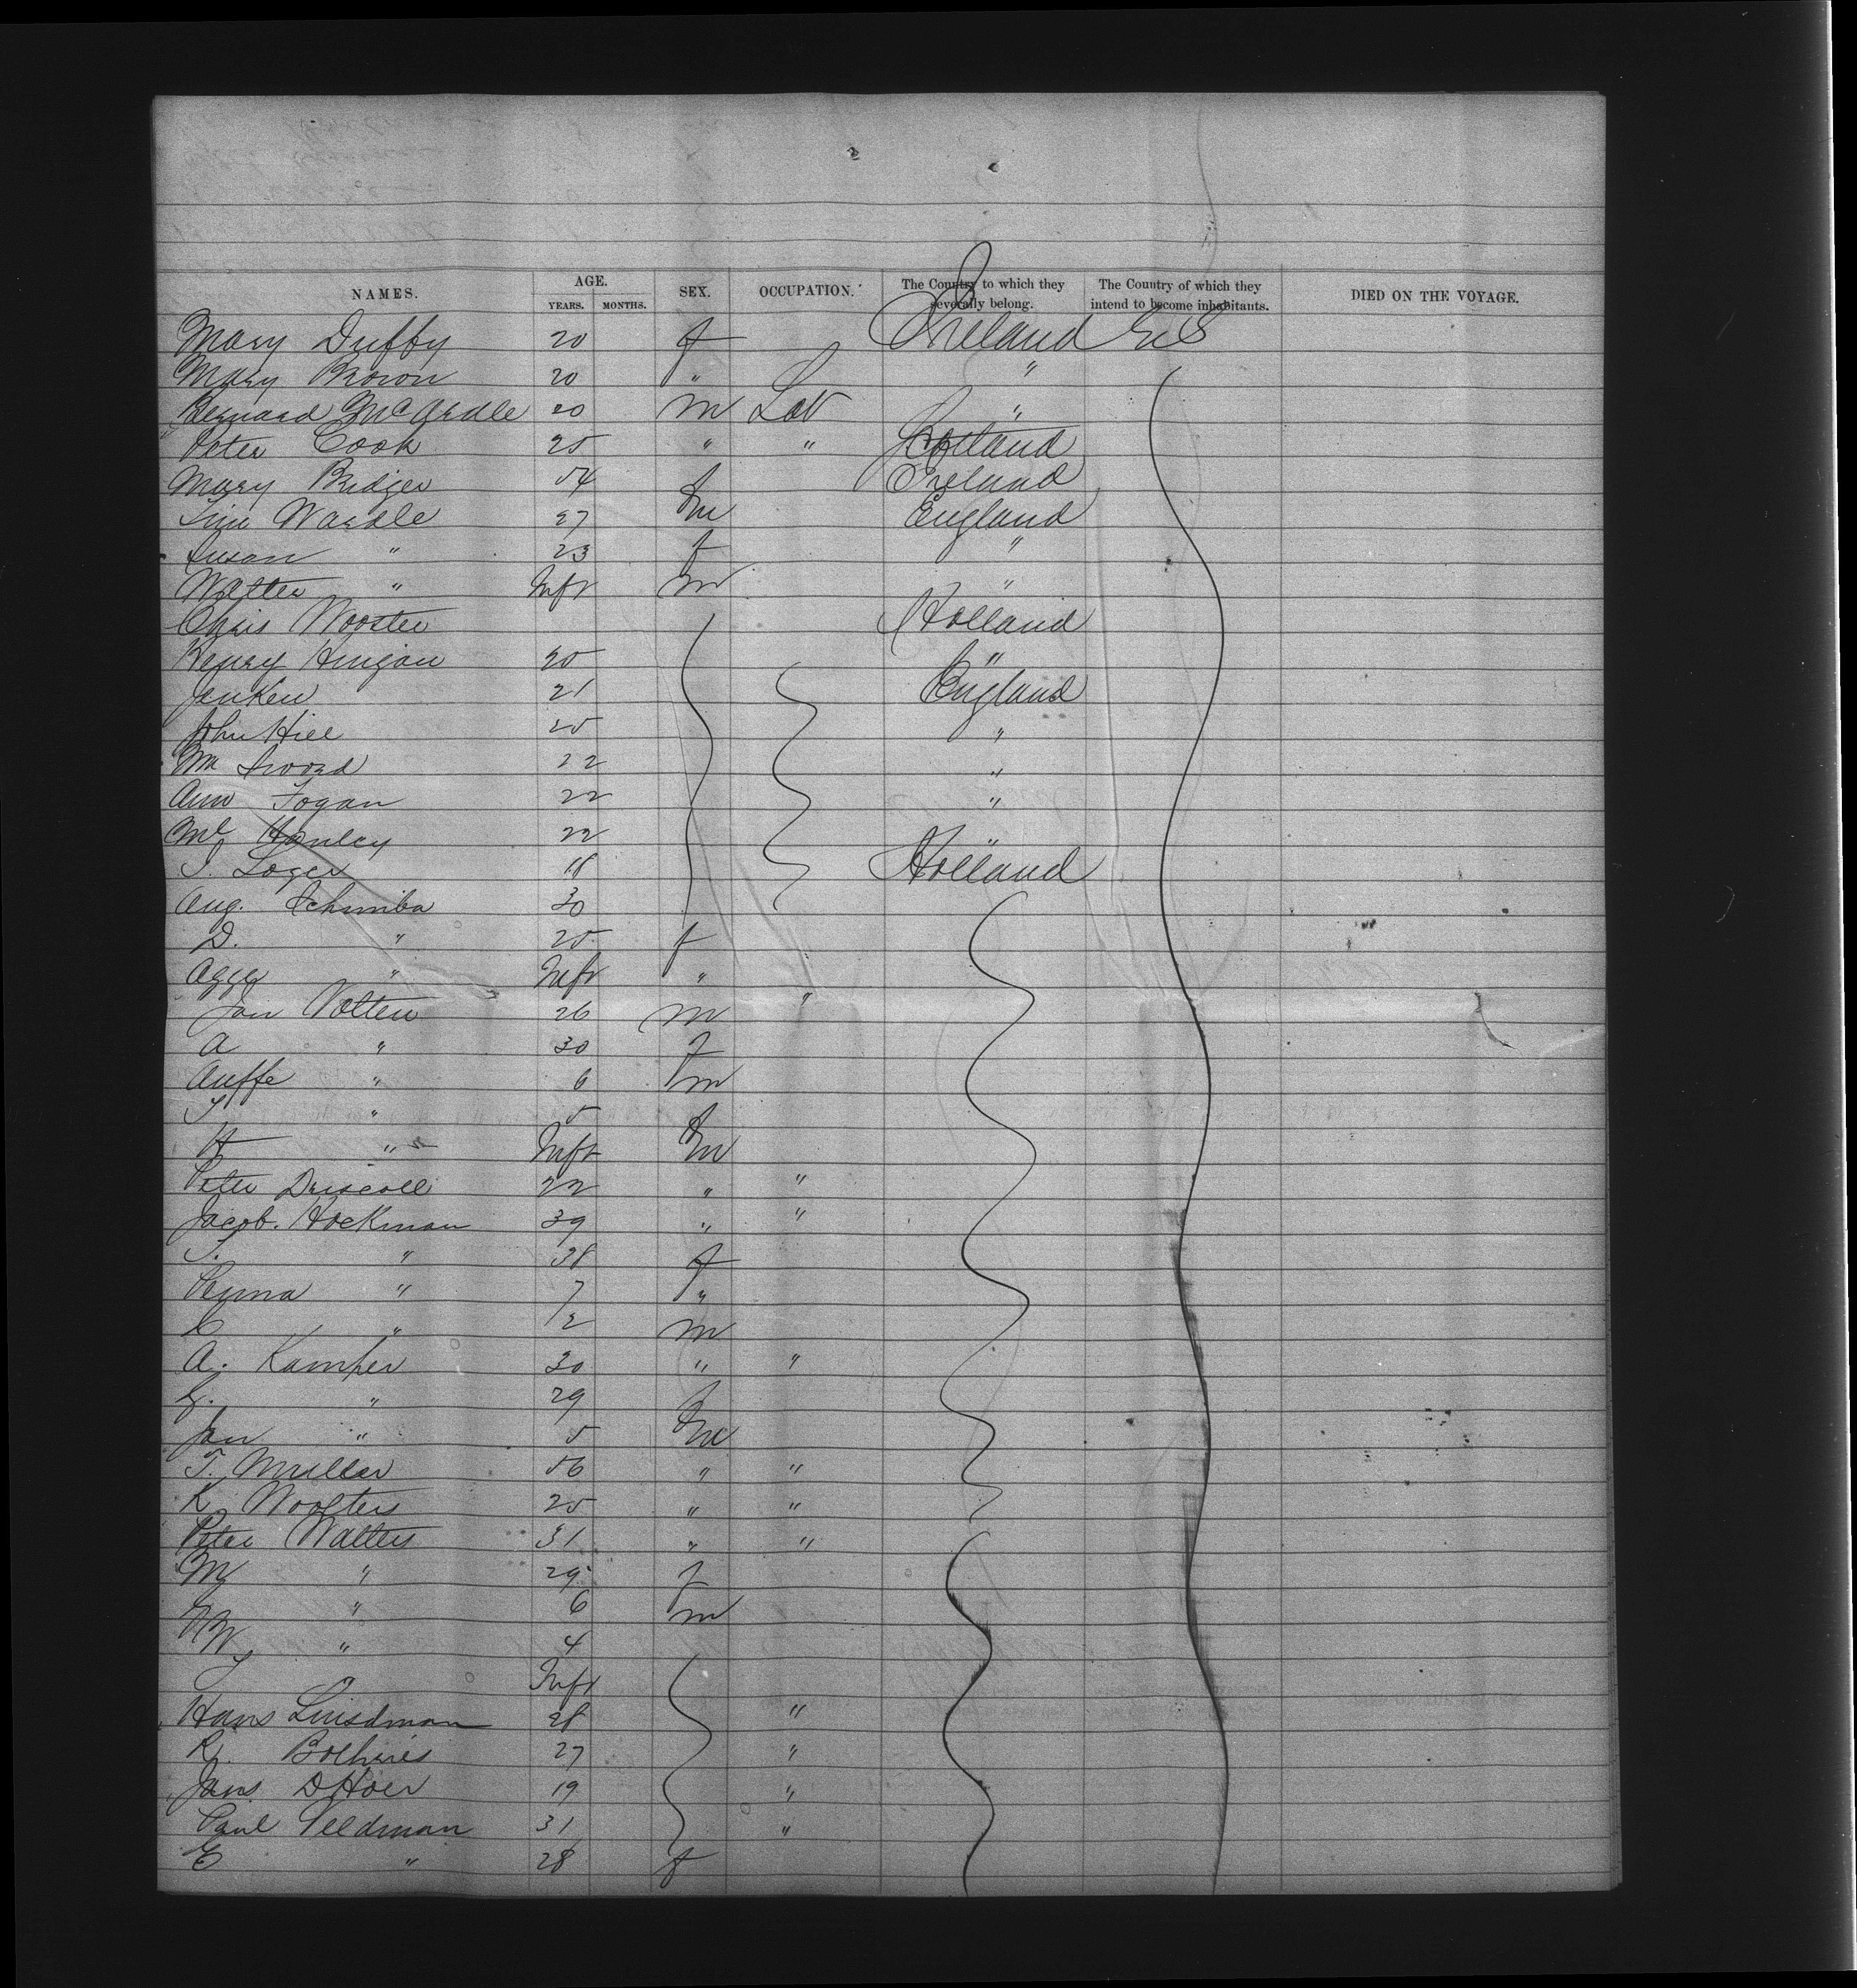 NAMES. AGE. YEARS. MONTHS. SEX. OCCUPATION. The Country to which they severally belong. The Country of which they intend to become inhabitants. DIED ON THE VOYAGE.
Mary Duffy 20 f Ireland U S
Mary Brown 20 " "
Bernard McArdle 20 m Lab "
Peter Cook 25 " " Scotland
Mary Bridges 54 f Ireland
Wardle 27 m England
Susan " 23 f "
Walter " Inft m "
Chris Wooster Holland
Henry 20 "
Jenken 21 England
John Hill 25 "
Wm Sword 22 "
Ann Fogan 22 "
Ml Hanley 22 "
J. Loger 18 Holland
Aug. Schimba 30
D. " 25 f
Agge " Inft "
Jan Nolten 26 m "
A " 30 f
Auffe " 6 m
" 5 f
H " Inft m
Peter Driscoll 22 " "
Jacob. Hockman 39 " "
" 38 f
" 7 "
" 1/2 m
A. Kamper 30 " "
G. " 29 f
Jan " 5 m
T. Muller 56 " "
K Woolters 25 " "
Peter Walters 31 " "
M " 29 f
" 6 m
W " 4
" Inft
Hans Linsdman 28 "
R. 27 "
Jans DHoer 19 "
Paul Veldman 31 "
E " 28 f